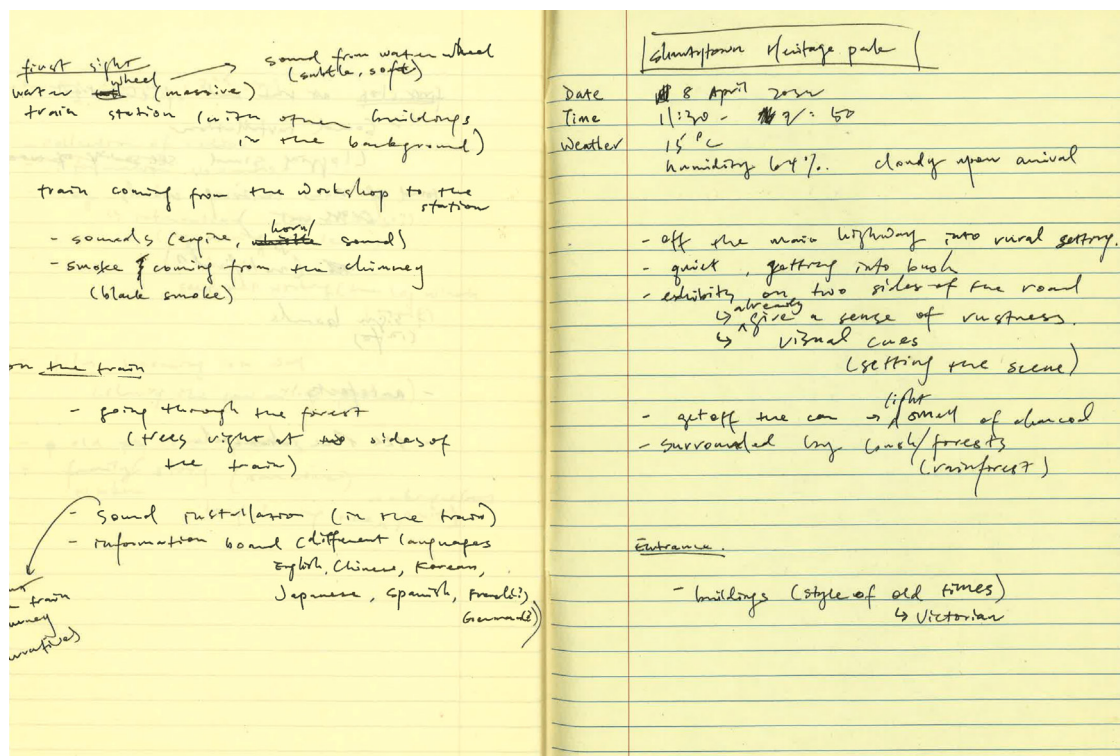 first sight
water wheel (massive) → sound from water wheel
(subtle, soft)
train station (with other buildings
in the background)
train coming from the workshop to the
station
- sounds (engine, horn/ whistle sound)
- smoke coming from the chimney
(black smoke)
on the train
- going through the forest
(trees right at two sides of
the train)
- sound installation (in the train)
- information board (different languages
English, Chinese, Korean,
Japanese, Spanish, French(?)
German(?))
train
Shantytown Heritage park
Date 8 April 2022
Time 11:30 - : 50
Weather 15°C
humidity 64%. cloudy upon arrival
- off the main highway into rural setting.
- quiet, getting into bush
- exhibits on two sides of the road
↳ already give a sense of rustness.
↳ visual cues
(setting the scene)
- get off the car → light smell of charcoal
- surrounded by bush/forests
(rainforest)
Entrance.
- buildings (style of old times)
↳ Victorian